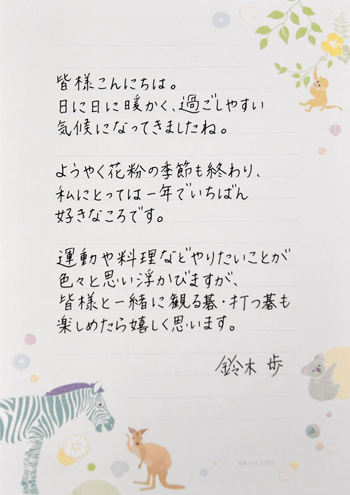 皆様こんにちは。
日に日に暖かく、過ごしやすい
気候になってきましたね。
ようやく花粉の季節も終わり、
私にとっては一年でいちばん
好きなころです。
運動や料理などやりたいことが
色々と思い浮かびますが、
皆様と一緒に観る碁・打つ碁も
楽しめたら嬉しく思います。
鈴木 歩